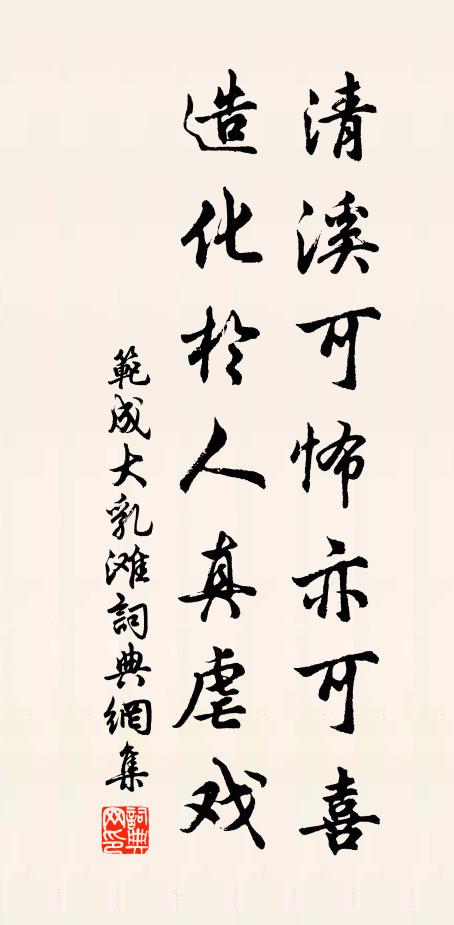 清溪可怖亦可喜
造化於人真虐戏
範成大乳滩詞典網集
詞典网印